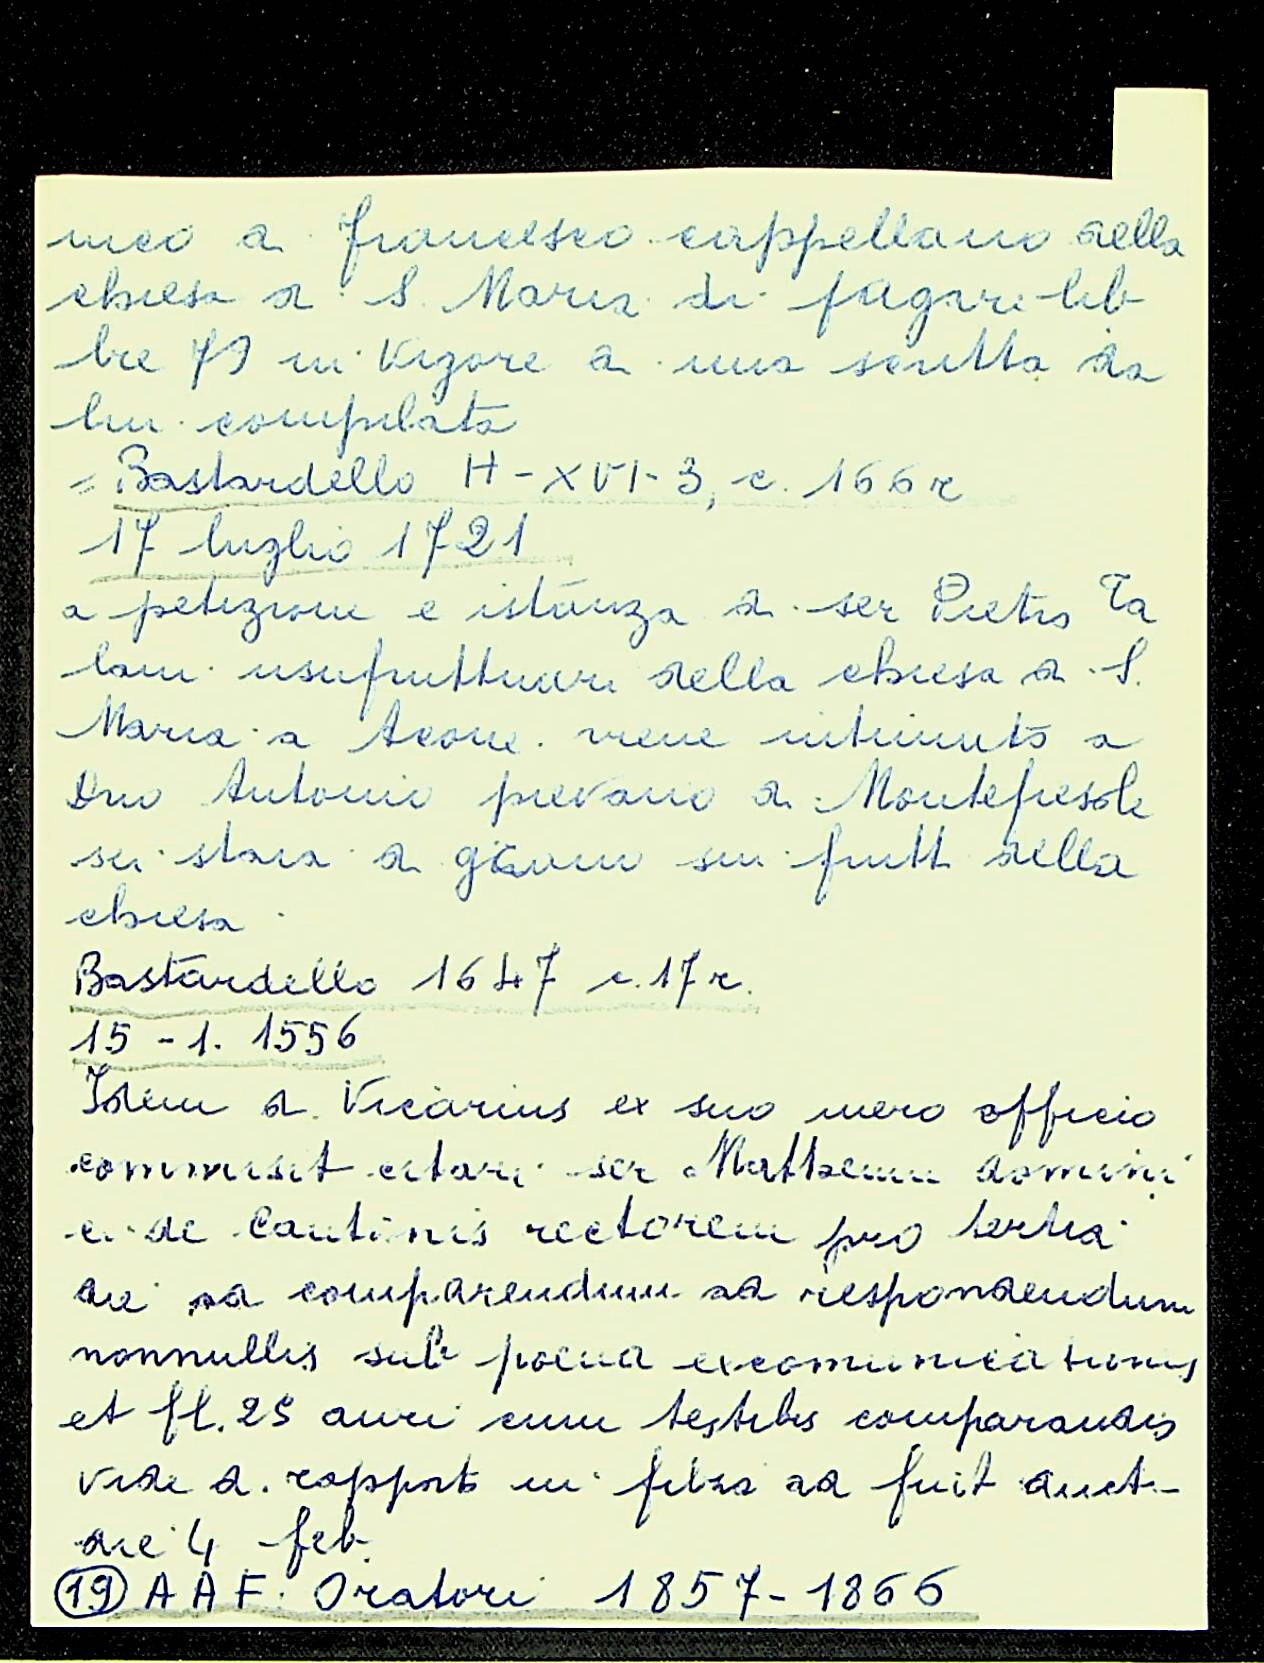 nico a Francesco cappellano della
chiesa di S. Maria di pagare lib
bre 79 in vigore di una scritta da
lui compilata
= Bastardello H-XVI-3, c. 166r
17 luglio 1721
a petizione e istanza di ser Pietro Ta
lani usufruttuari della chiesa di S.
Maria a Acone viene intimato a
Dno Antonio pievano di Montefiesole
sei staia di grano sui frutti della
chiesa.
Bastardello 1647 c. 17r.
15-1. 1556
Idem d. Vicarius ex suo mero officio
commisit citari ser Mattheum domini
ci de Cantinis rectorem pro tertia
die ad comparendum ad respondendum
nonnullis sub poena excomunicationis
et fl. 25 auri cum testibus comparandis
vide d. rapporto in filza ad fuit
die 4 feb.
(19) A A F. Oratori 1857-1866